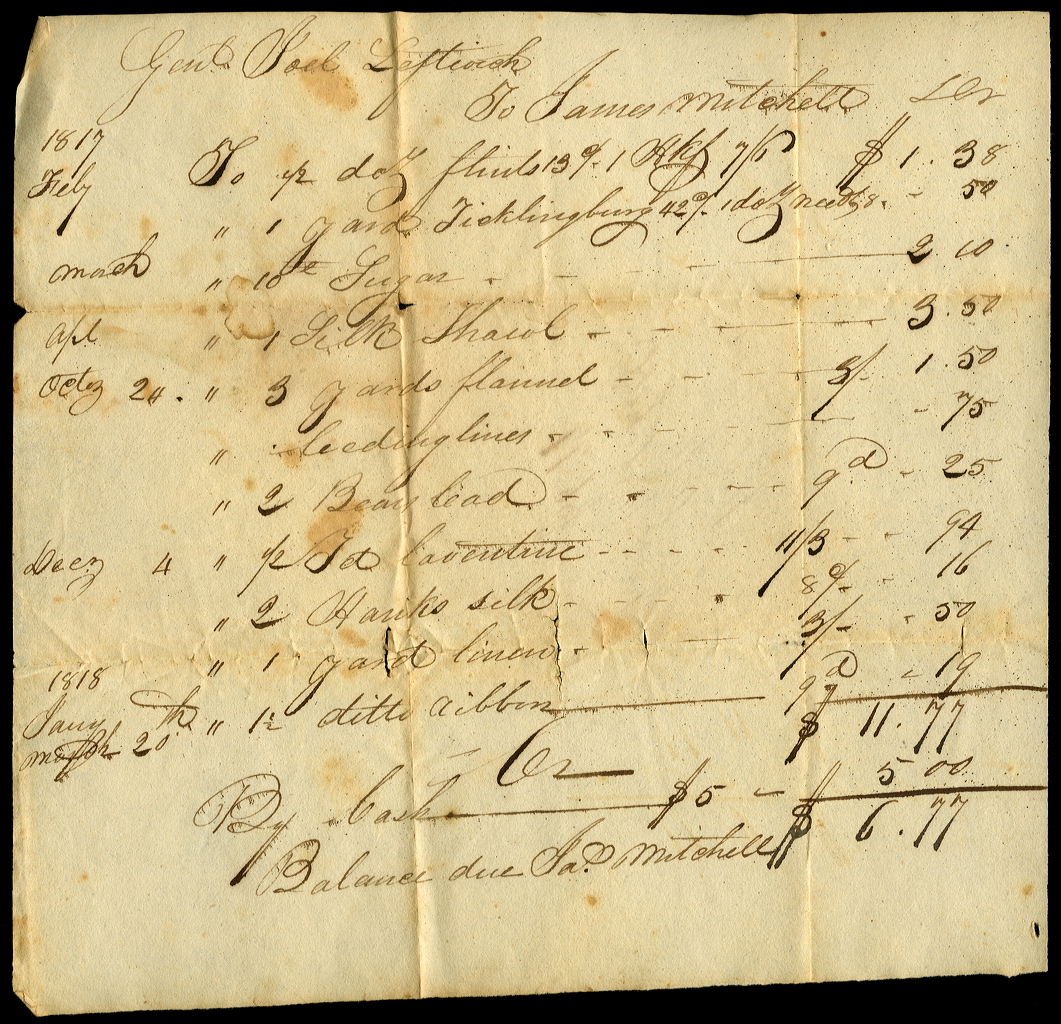 Genl Joel Leftwich
To James Mitchell Dr
1817
Feby To 1/2 doz flints 13 1 Hkf 7/6 $ 1.38
" 1 yard Ticklingburg 42 1 doz needls 8. - 50
March " 10 Sugar - - 2 10
Apl " 1 Silk Shawl - - 3.50
Octr 24. " 3 yards flannel - - 3/- 1.50
" leedinglines - - - 75
" 2 Bears lead - - 9d - 25
Decr 4 " 1/2 Yd Laventine - - 11/3 - 94
" 2 Hanks silk - - 8 - 16
" 1 yard linen - 3/- - 50
1818
Jany " 1 1/2 ditto Ribbon 9d - 19
March 20th $ 11.77
Cr
By Cash $5 - 5 00
Balance due Jas Mitchell $ 6.77